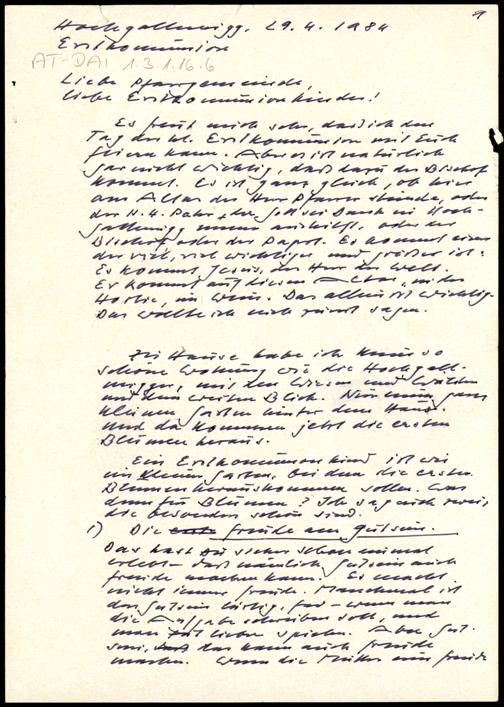 9
Hochgallmigg, 29. 4. 1984
Erstkommunion
AT-DAI 1.3.1.16.6
Liebe Pfarrgemeinde,
liebe Erstkommunionkinder!
Es freut mich sehr, daß ich den
Tag der hl. Erstkommunion mit Euch
feiern kann. Aber es ist natürlich
gar nicht wichtig, daß dazu der Bischof
kommt. Es ist ganz gleich, ob hier
am Altar der Herr Pfarrer stünde, oder
der H. H. Pater, der Gott sei Dank in Hoch-
gallmigg immer aushilft, oder der
Bischof oder der Papst. Es kommt einer
der viel, viel wichtiger und größer ist:
Es kommt Jesus, der Herr der Welt.
Er kommt auf diesen Altar, in der
Hostie, im Wein. Das allein ist wichtig.
Das wollte ich euch zuerst sagen.
Zu Hause habe ich keine so
schöne Wohnung wie die Hochgall-
migger, mit den Wiesen und Wäldern
und dem weiten Blick. Nur einen ganz
kleinen Garten hinter dem Haus.
Und da kommen jetzt die ersten
Blumen heraus.
Ein Erstkommunionkind ist wie
ein kleiner Garten, bei dem die ersten
Blumen herauskommen sollen. Was
denn für Blumen? Ich sag euch zwei,
die besonders schön sind.
1) Die Freude am Gutsein.
Das hast Du sicher schon einmal
erlebt - daß nämlich Gutsein auch
Freude machen kann. Es macht
nicht immer Freude. Manchmal ist
das Gutsein lästig, fad - wenn man
die Aufgabe schreiben soll, und
man tät lieber spielen. Aber Gut-
sein, das kann auch Freude
machen. Wenn die Mutter eine Freude